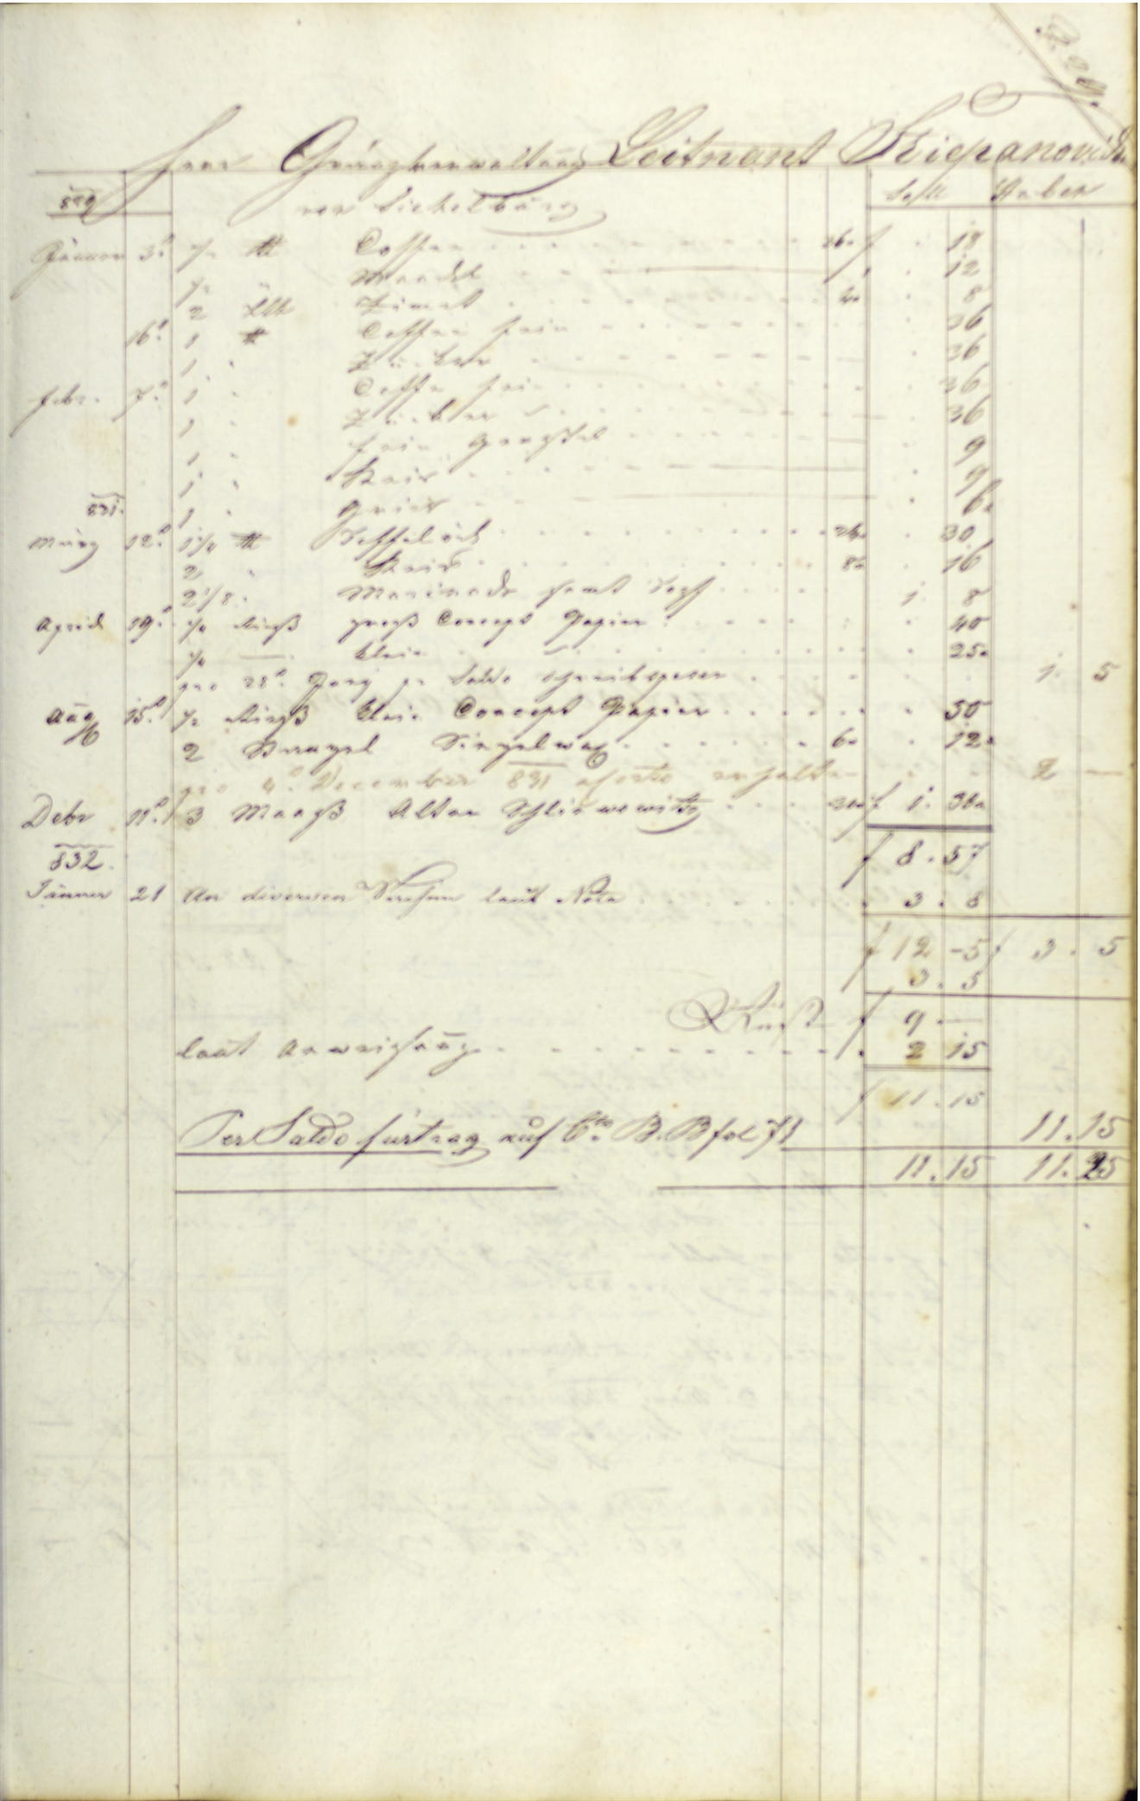 Herr Gränzverwaltung Leitnant Kiepanovich
von Sichelburg
829 Soll Haber
Jänner 3. ½ ℔ Coffee 36 f . 18
½ " Mandel . 12
2 Lth Zimet 4 . 8
16. 1 ℔ Coffee fein 36
1 " Zucker 36
Febr. 7. 1 " Coffe fein 36
1 " Zucker 36
1 " fein Gerstel 9
1 " Reis 9
831. 1 " Gries 6
März 12. 1¼ ℔ Tafelöhl 24 30
2 " Reis 8 16
2 1/8 " Marinade samt Topf 1. 8
April 19. ½ Rieß groß Concept Papier 40
½ — klein 25
pro 28. per Saldo 1. 5
Aug 15. ½ Rieß klein Concept Papier 50
2 Stangel Siegelwax 6 . 12
pro 4. December 831 a Conto erhalten 2 —
Debr 11. 3 Maaß Alten Schliwowitz f 1. 36
f 8.57
832.
Jänner 21 An diversen Sachen laut Nota 3.8
f 12-5 f 3.5
3.5
Rest f 9 —
laut Anweisung 2 15
f 11.15
Per Saldo fürtrag auf Cto B. B fol 71 11.15
11.15 11.25